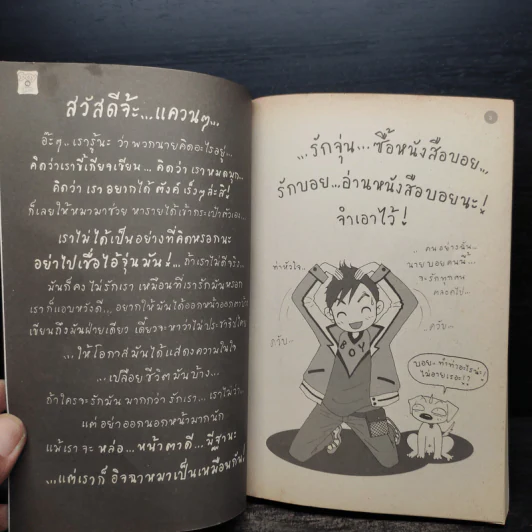 สวัสดีจ้ะ...แควนๆ...
อ๊ะๆ... เรารู้นะ ว่าพวกนายคิดอะไรอยู่...
คิดว่าเราขี้เกียจเขียน... คิดว่าเราหมดมุก...
คิดว่าเราอยากได้ตังค์เร็วๆล่ะสิ!
ก็เลยให้หมามาช่วย หารายได้เข้ากระเป๋าตัวเอง...
เราไม่ได้เป็นอย่างที่คิดหรอกนะ
อย่าไปเชื่อไอ้จุ่นมัน! ..ถ้าเราไม่ดีจริง..
มันก็คงไม่รักเรา เหมือนที่เรารักมันหรอก
เราก็แอบหวังดี... อยากให้มันได้ออกหน้าออกตาบ้าง
เขียนถึงมันฝ่ายเดียว เดี๋ยวจะหาว่าไม่ประชาธิปไตย
...ให้โอกาสมันได้แสดงความในใจ
...เปลือยชีวิตมันบ้าง...
ถ้าใครจะรักมัน มากกว่ารักเรา... เราไม่ว่า...
แต่ อย่าออกนอกหน้ามากนัก
แม้เราจะ หล่อ...หน้าตาดี...มีฐานะ
...แต่เราก็ อิจฉาหมาเป็นเหมือนกัน!
...รักจุ่น...ซื้อหนังสือบอย...
รักบอย...อ่านหนังสือบอยนะ!
จำเอาไว้!
..คนอย่างฉัน..
นายบอยคนนี้...
จะรักทุกคน
ตลอดไป...
ท่าหัวใจ..
ควับ..
..ควับ..
BOY
บอย.. ทำท่าอะไรน่ะ!
ไม่อายเรอะ!?